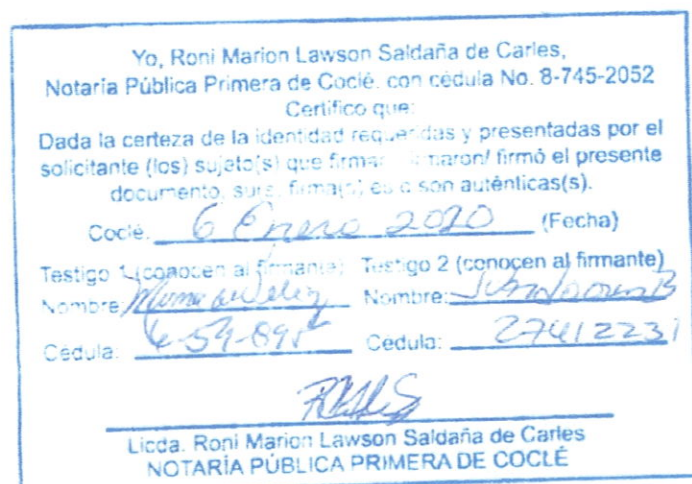 Yo, Roni Marion Lawson Saldaña de Carles,
Notaría Pública Primera de Coclé, con cédula No. 8-745-2052
Certifico que:
Dada la certeza de la identidad requeridas y presentadas por el
solicitante (los) sujeto(s) que firmaron/ firmó el presente
documento, su(s) firma(s) es o son auténticas(s).
Coclé, 6 Enero 2020 (Fecha)
Testigo 1 (conocen al firmante) Testigo 2 (conocen al firmante)
Nombre: Nombre:
Cédula: Cédula:
Licda. Roni Marion Lawson Saldaña de Carles
NOTARÍA PÚBLICA PRIMERA DE COCLÉ